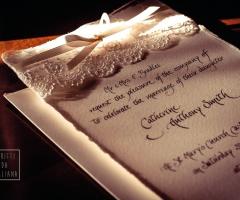 Mr & Mrs E. Bradley
request the pleasure of the company of
to celebrate the marriage of their daughter
Catherine
Anthony Smith
At St Mary's Church
on Saturday